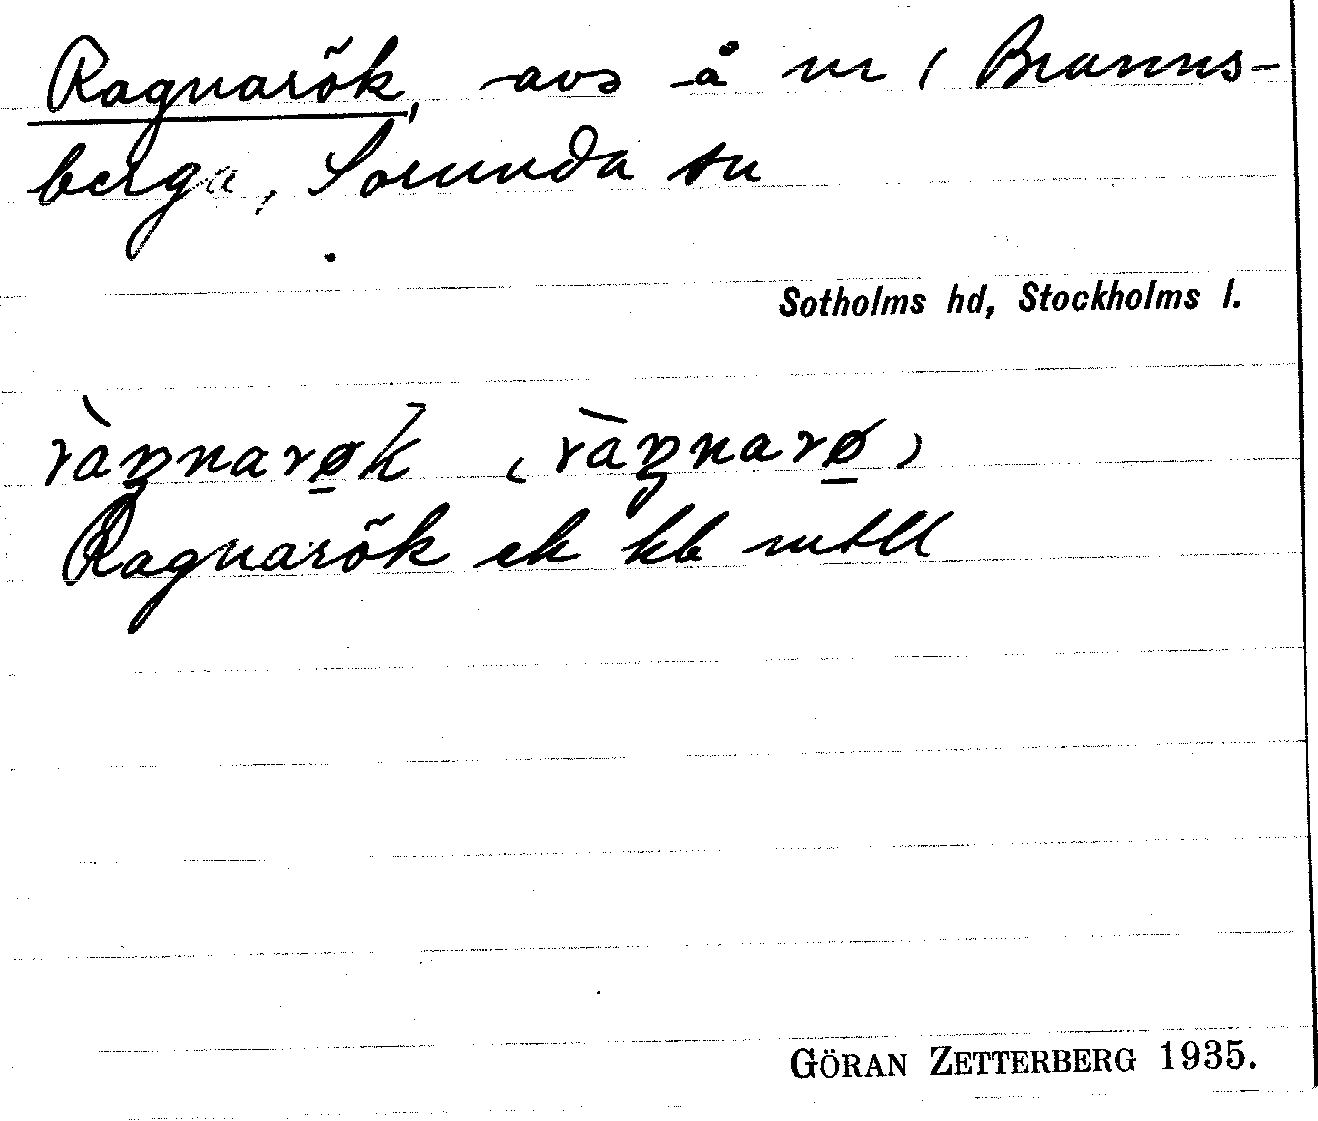 Ragnarök, avs å nr 1 Branns-
berga, Sorunda sn
Sotholms hd, Stockholms l.
ràŋnarøk (ràŋnarø)
Ragnarök ek kb mtll
GÖRAN ZETTERBERG 1935.